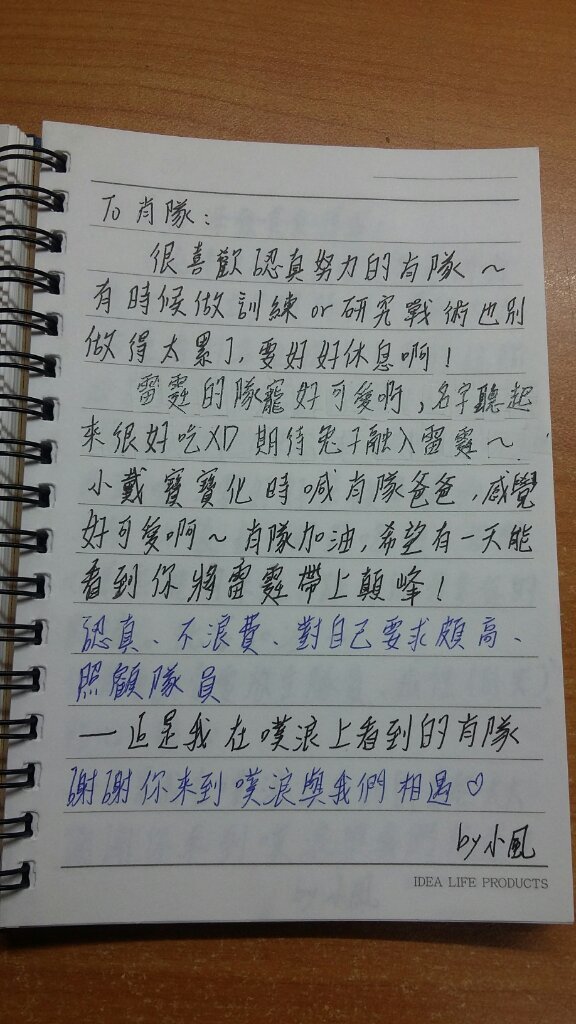 To 肖隊:
很喜歡認真努力的肖隊～
有時候做訓練or研究戰術也別
做得太累了,要好好休息啊!
雷霆的隊寵好可愛啊,名字聽起
來很好吃XD 期待兔子融入雷霆～
小戴寶寶化時喊肖隊爸爸,感覺
好可愛啊～肖隊加油,希望有一天能
看到你將雷霆帶上顛峰!
認真、不浪費、對自己要求頗高、
照顧隊員
—這是我在噗浪上看到的肖隊
謝謝你來到噗浪與我們相遇♡
by小風
IDEA LIFE PRODUCTS